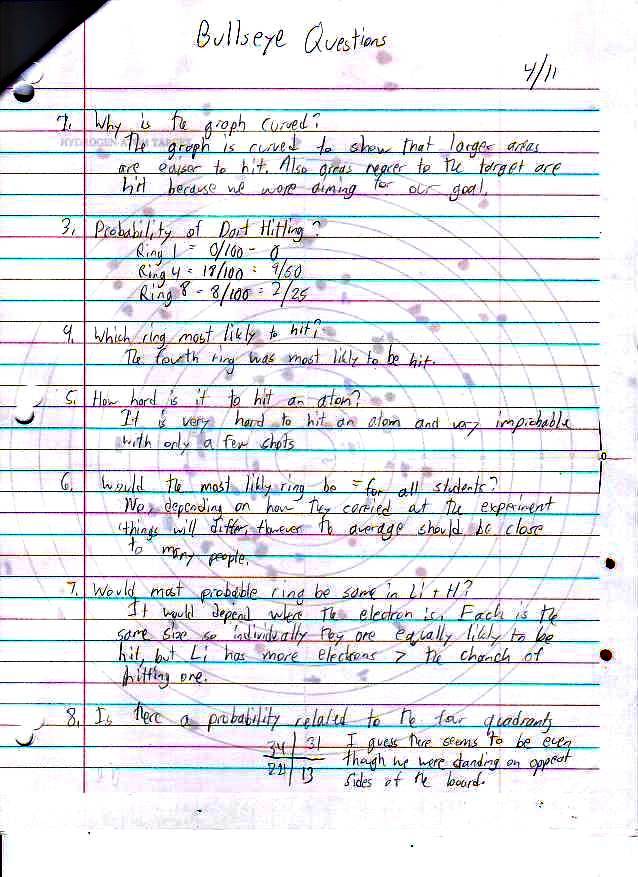 Bullseye Questions
4/11
1. Why is the graph curved?
HYDROGEN ATOM TARGET
The graph is curved to show that larger areas
are eaiser to hit. Also areas nearer to the target are
hit because we were aiming for our goal.
3. Probability of Dart Hitting?
Ring 1 = 0/100 = 0
Ring 4 = 18/100 = 9/50
Ring 8 = 8/100 = 2/25
4. Which ring most likely to hit?
The fourth ring was most likly to be hit.
5. How hard is it to hit an atom?
It is very hard to hit an atom and very
with only a few shots
6. Would the most likly ring be = for all students?
No, depending on how they carried out the experiment
things will differ, however the average should be close
to many people.
7. Would most probable ring be same in Li + H?
It would depend where the electron is. Each is the
same size so individually they are equally likly to be
hit, but Li has more electrons > the chanch of
hitting one.
8. Is there a probability related to the four quadrants
34 | 31 I guess there seems to be even
22 | 13 though we were standing on oppeat
sides of the board.